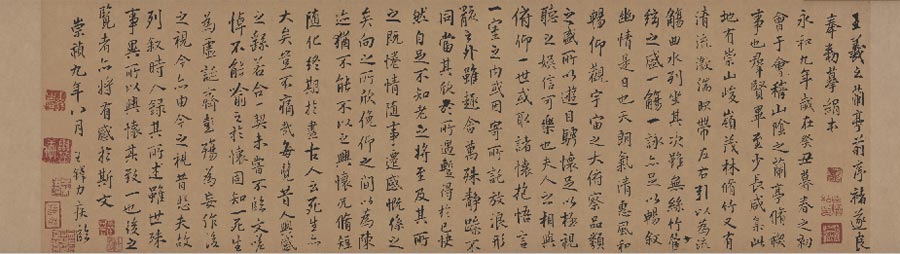 王羲之蘭亭前序褚遂良
奉勅摹絹本
永和九年歲在癸丑暮春之初
會于會稽山陰之蘭亭脩禊
事也羣賢畢至少長咸集此
地有崇山峻嶺茂林脩竹又有
清流激湍映帶左右引以為流
觴曲水列坐其次雖無絲竹管
絃之盛一觴一詠亦足以暢叙
幽情是日也天朗氣清惠風和
暢仰觀宇宙之大俯察品類
之盛所以遊目騁懷足以極視
聽之娛信可樂也夫人之相與
俯仰一世或取諸懷抱悟言
一室之内或因寄所託放浪形
骸之外雖趣舍萬殊靜躁不
同當其欣於所遇蹔得於己快
然自足不知老之將至及其所
之既惓情隨事遷感慨係之
矣向之所欣俛仰之間以為陳
迹猶不能不以之興懷況脩短
隨化終期於盡古人云死生亦
大矣豈不痛哉每覽昔人興感
之若合一契未嘗不臨文嗟
悼不能喻之於懷固知一死生
為虛誕齊彭殤為妄作後
之視今亦由今之視昔悲夫故
列叙時人錄其所述雖世殊
事異所以興懷其致一也後之
覽者亦將有感於斯文
崇禎九年八月 王鐸力疾臨